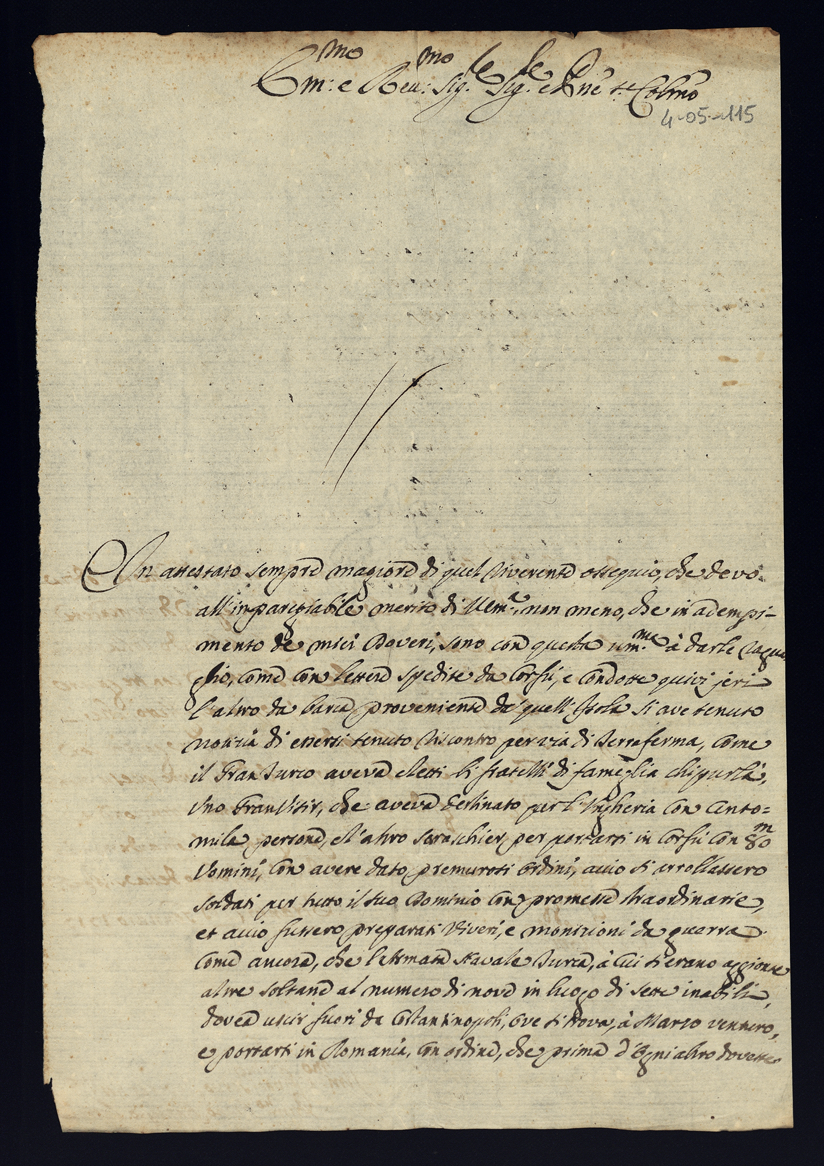 Em:mo e Reu:mo Sig.re Sig.re e Pne Colmo
4-05-115
In attestato sempre magiore di quel riverente ossequio, che devo
all'inparegiabile merito di V.Em.a, non meno, che in adempi-
mento de miei Doveri, sono con questa um.me à darle ragua
glio, come con lettere spedite da Corfù, e condotte quivi jeri
l'altro da barca proveniente da quell'Isola si ave tenuto
notizia di essersi tenuto riscontro per via di Terraferma, come
il Gran Turco aveva eletti li fratelli di famiglia
Uno Gran Visir, che aveva destinato per l'Ungheria con cento=
mila persone, e l'altro Seraschier per portarsi in Corfù con 80m
Uomini, con avere dato premurosi ordini, acciò si arrollassero
soldati per tutto il suo Dominio con promesse straordinarie,
et acciò fussero preparati viveri, e monizioni da guerra.
Come ancora, che l'Armata Navale Turca, à cui si erano aggionte
altre soltane al numero di nove in luogo di sette inabili,
dovea uscir fuori da Costantinopoli, ove si trova, à Marzo venturo,
e portarsi in Romania, con ordine, che prima d'ogni altro dovesse